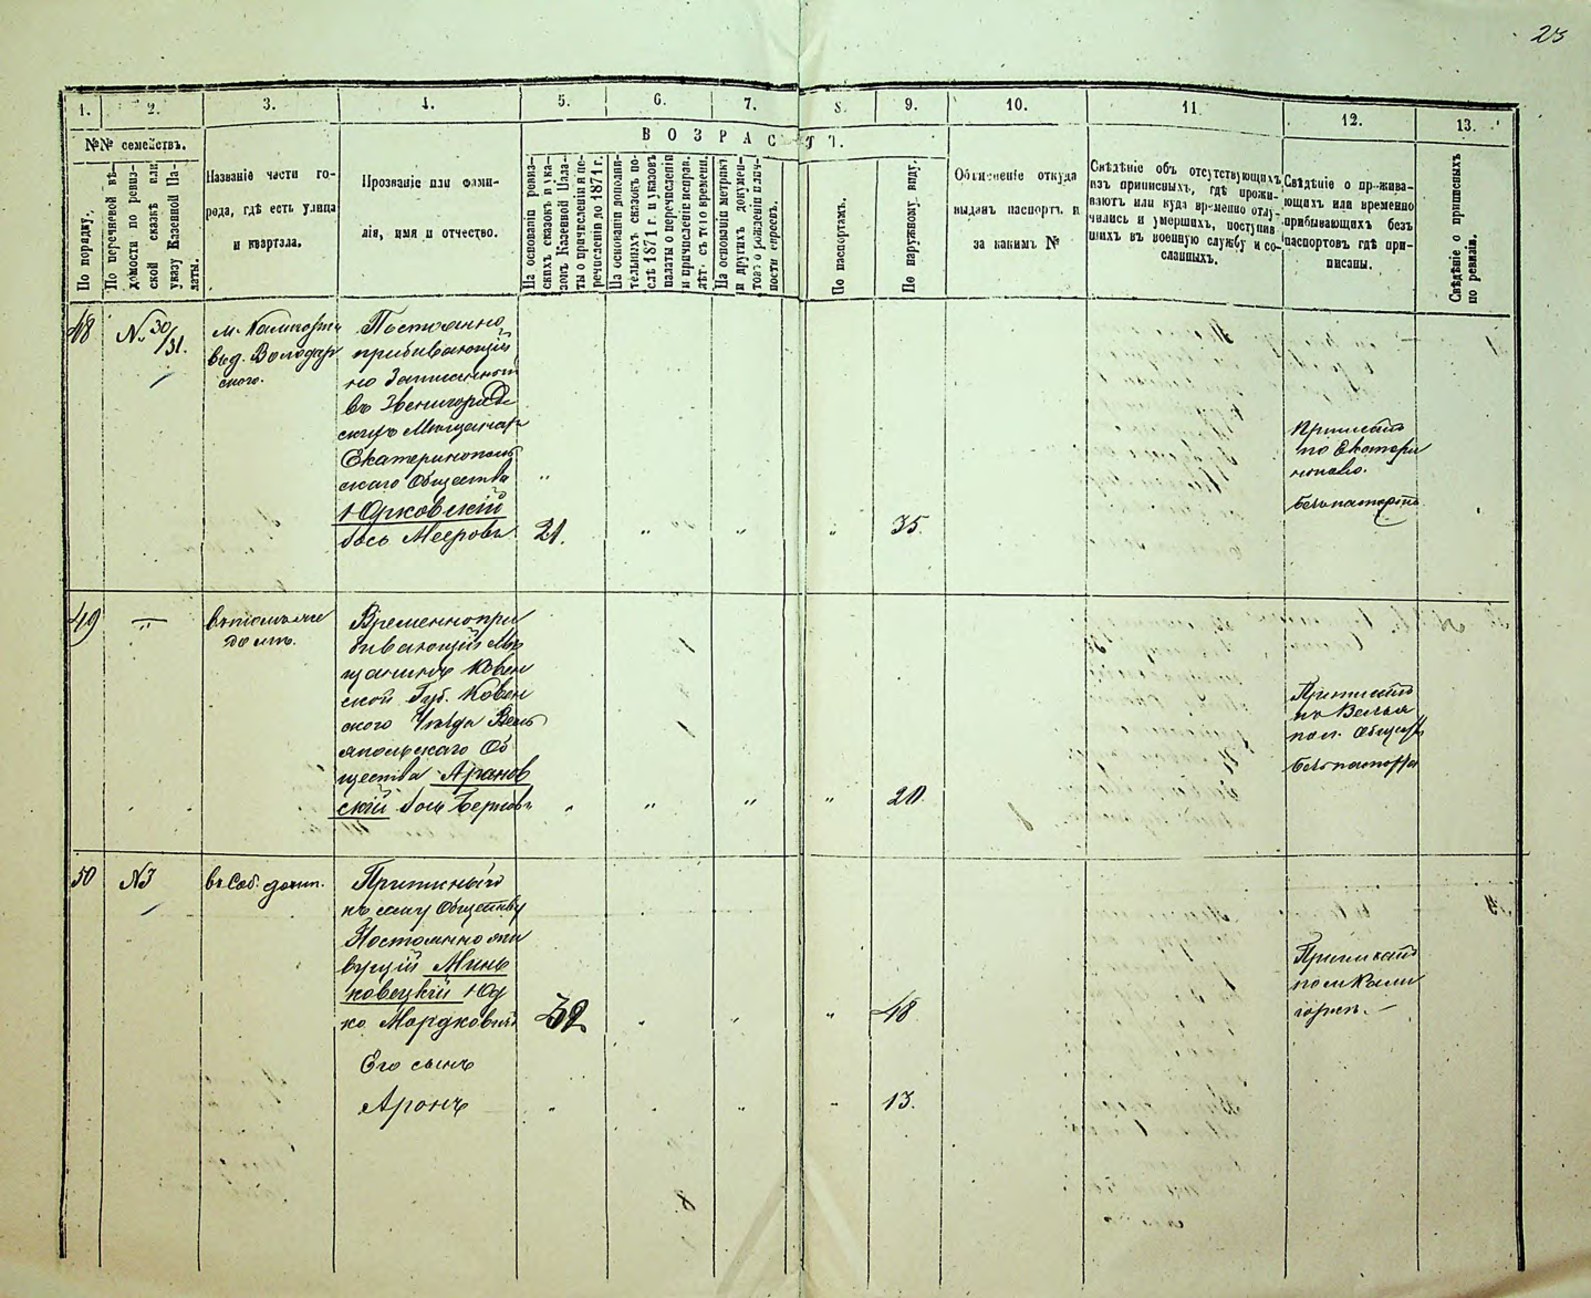 23
1. 2. 3. 4. 5. 6. 7. 8. 9. 10. 11 12. 13.
№№ семействъ.
ВОЗРАСТЪ.
По порядку.
По перечневой вѣ-
домости по ревиз-
ской сказкѣ или
указу Казенной Па-
латы.
Названіе части го-
рода, гдѣ есть улица
и квартала.
Прозваніе или фами-
лія, имя и отчество.
На основаніи ревиз-
скихъ сказокъ и ука-
зовъ Казенной Пала-
ты о причисленіи и пе-
речисленіи до 1871 г.
На основаніи дополни-
тельныхъ сказокъ по-
слѣ 1871 г. и указовъ
палаты о перечисленіи
и причисленіе исправ.
лѣт. съ того времени.
На основаніи метрикъ
и другихъ докумен-
товъ о рожденіи
По паспортамъ.
По наружному виду.
Объясненіе откуда
выданъ паспортъ и
за какимъ №
Свѣдѣніе объ отсутствующихъ
изъ приписныхъ, гдѣ прожи-
ваютъ или куда временно отлу-
чились и умершихъ, поступив
шихъ въ военную службу и со-
сланныхъ.
Свѣдѣніе о прожива-
ющихъ или временно
прибывающихъ безъ
паспортовъ гдѣ при-
писаны.
Свѣдѣніе о приписныхъ
по ревизіи.
48
№ 30/31.
вѣд. Володар
ского.
Постоянно
прибивающій
но Записанной
въ Звенигородс
Екатеринополь
скаго Общества
Юрковскій
Іось Мееровъ
21. " " " 35.
Приписанъ
по Екатери
нополю.
безъ паспорта
49
"
домѣ.
Временно при
бивающій мѣ
щанинъ Ковен
ской Губ. Ковен
ского Уѣзда Вель
япольскаго Об
щества Арановс
скій Іось Берковъ
" " " " 20.
Приписанъ
по Велья
пол. Общест
безъ паспорта
50
№3
въ Соб. домѣ.
Приписный
къ сему Обществу
Постоянно жи
вущій Минь
ковецкій Юд
ко Мордковичъ
32 " " " 48
Приписанъ
по м Кали
горкѣ. —
Его сынъ
Аронъ
" " " " 13.